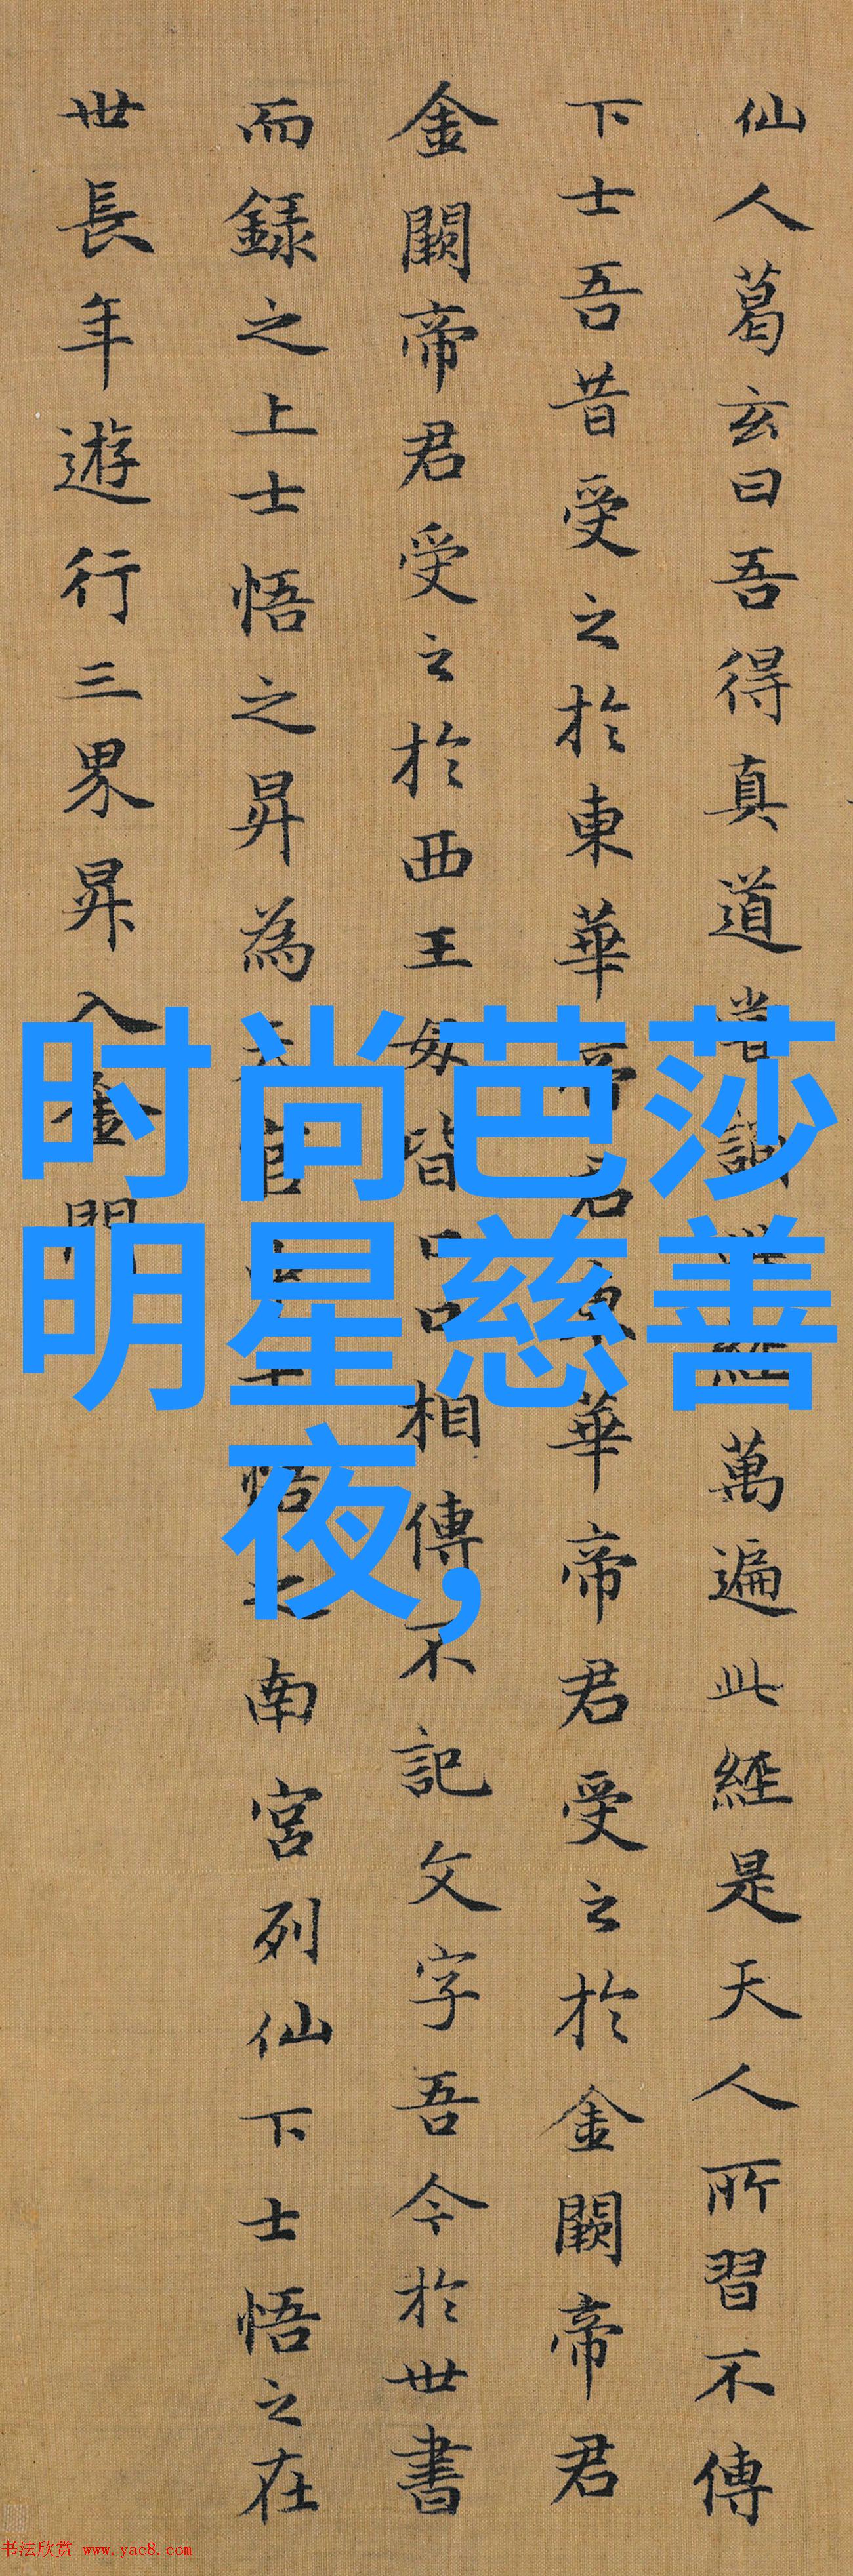 仙人葛玄曰吾得真道萬遍此經是天人所習不傳
下士吾昔受之於東華帝君東華帝君受之於金闕帝君
金闕帝君受之於西王母皆口口相傳不記文字吾今於世書
而録之上士悟之昇為南宮列仙下士悟之在
世長年遊行三界昇入金門
时尚芭莎
明星慈善
夜，
书法欣赏 www.yac8.com